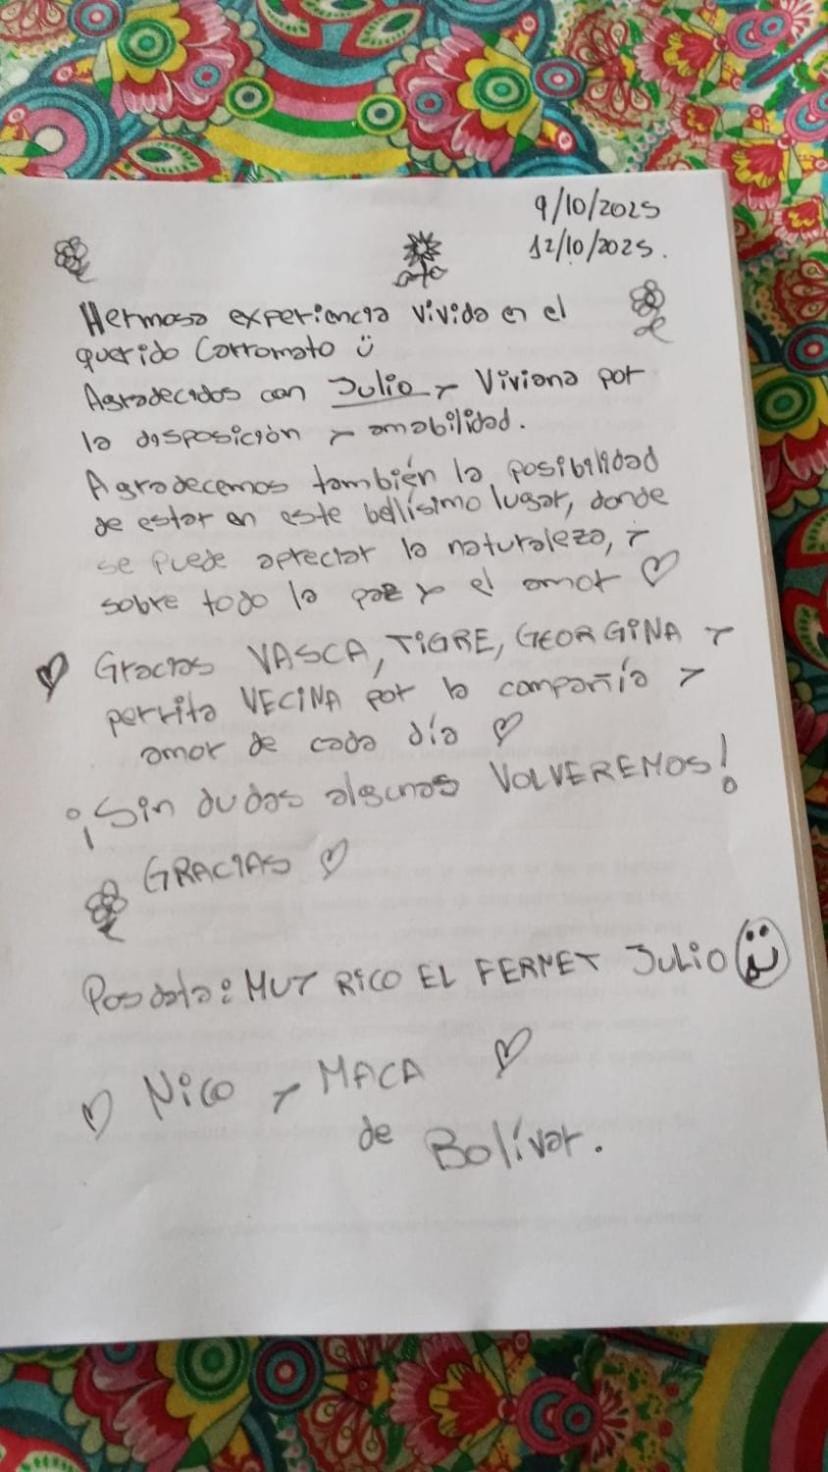 9/10/2025
12/10/2025.
Hermosa experiencia vivida en el
querido Corromato
Agradecidos con Julio y Viviana por
la disposición y amabilidad.
Agradecemos también la posibilidad
de estar en este bellísimo lugar, donde
se puede apreciar la naturaleza, y
sobre todo la paz y el amor ♡
♡ Gracias VASCA, TIGRE, GEORGINA y
perrita VECINA por la compañía y
amor de cada día ♡
¡Sin dudas algunas VOLVEREMOS!
GRACIAS ♡
Posdata: MUY RICO EL FERNET JULIO
♡ Nico y MACA ♡
de Bolívar.